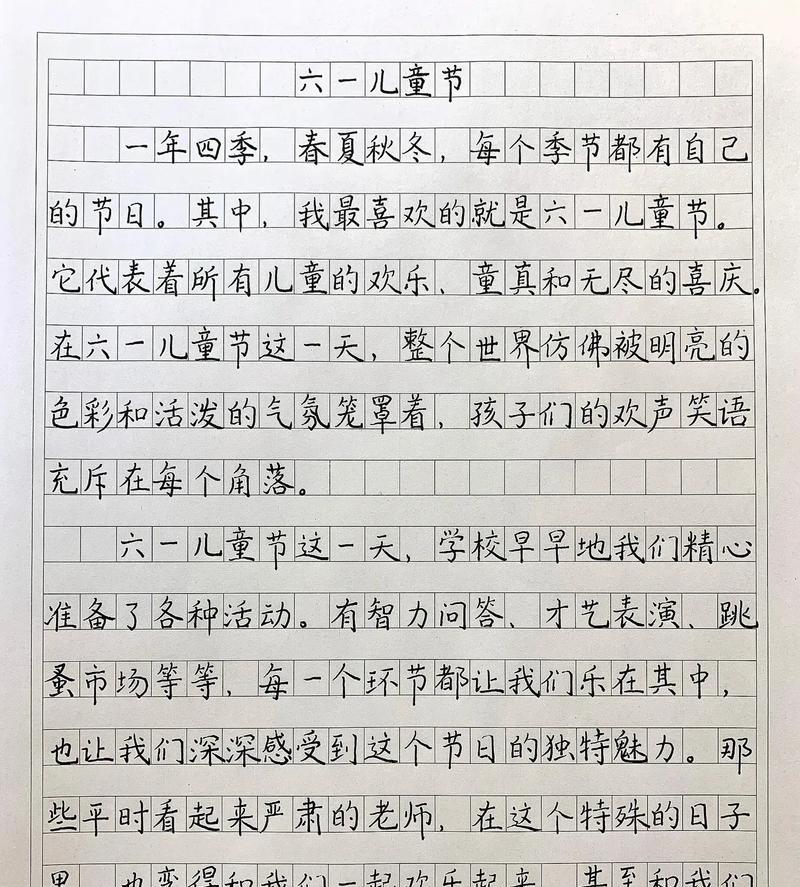 六一儿童节
一年四季，春夏秋冬，每个季节都有自己
的节日。其中，我最喜欢的就是六一儿童节。
它代表着所有儿童的欢乐、童真和无尽的喜庆。
在六一儿童节这一天，整个世界仿佛被明亮的
色彩和活泼的气氛笼罩着，孩子们的欢声笑语
充斥在每个角落。
六一儿童节这一天，学校早早地我们精心
准备了各种活动。有智力问答、才艺表演、跳
蚤市场等等，每一个环节都让我们乐在其中，
也让我们深深感受到这个节日的独特魅力。那
些平时看起来严肃的老师，在这个特殊的日子
里，也变得和我们一起欢乐起来，甚至和我们